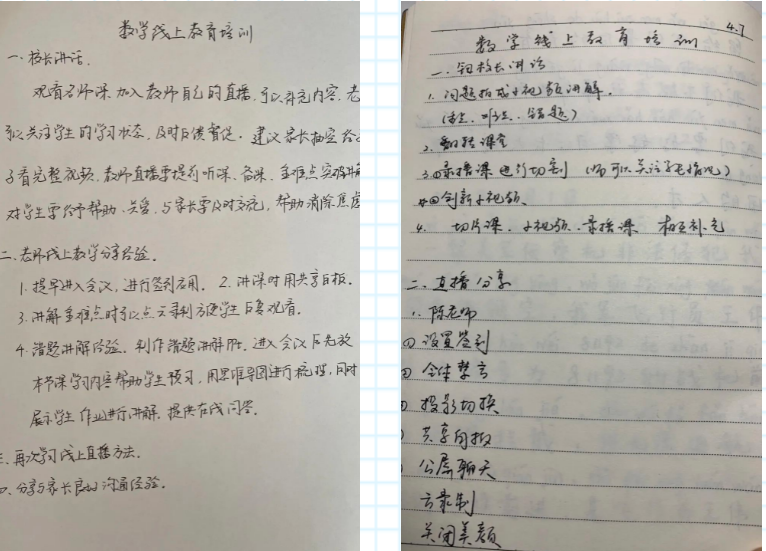 数学线上教育培训
一、校长讲话。
观看名师课,加入教师自己的直播,可以补充内容,老
可以关注学生的学习状态,及时反馈督促。建议家长抽空给孩
子看完整视频。教师直播要提前听课、备课,重难点突破讲解
对学生要给予帮助、关爱,与家长要及时交流,帮助消除焦虑
二、老师线上教学分享经验。
1.提早进入会议,进行签到启用。2.讲课时用共享白板。
3.讲解重难点时可以点云录制方便学生反复观看。
4.错题讲解经验。制作错题讲解PPt。进入会议后先放
本节课学习内容帮助学生预习,用思维导图进行梳理,同时
展示学生作业进行讲解。提供在线问答。
三、再次学习线上直播方法。
四、分享与家长良好沟通经验。
4.7
数学线上教育培训
一、校长讲话
1.问题拍成小视频讲解。
错题)
2.翻转课堂
3.录播课进行切割
创新小视频、
4. 切片课、小视频、录播课 相互补充
二、直播分享
1、陈老师
设置签到
全体禁言
投影切换
共享白板
公屏聊天
云录制
关闭美颜